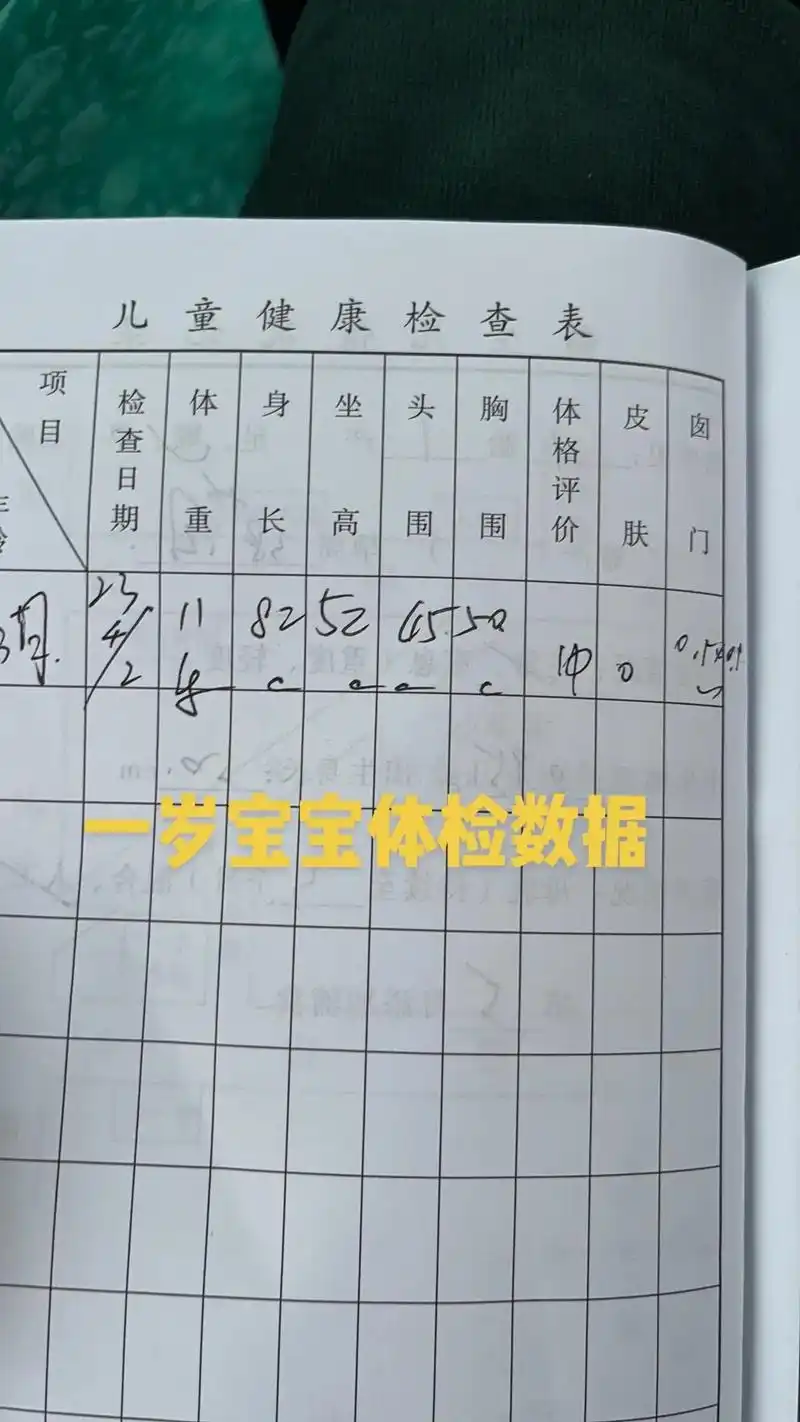 儿童健康检查表
项目
检查日期
体重
身长
坐高
头围
胸围
体格评价
皮肤
囟门
23 4/2
11
82
52
45.
50
中
0
一岁宝宝体检数据